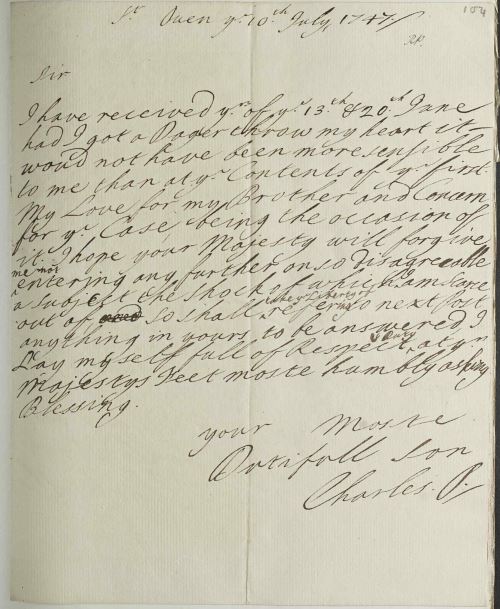 St Ouen ye. 10th July, 1747/
104
RP.
Sir
I have received yrs. of ye. 13.th & 20.th June
had I got a Dager throw my heart it
woud not have been more sensible
to me than at ye Contents of yr first.
My Love for my Brother and Concern
for yr Case being the occasion of
it. I hope your Majesty will forgive
me not
entering any further on so Disagreeable
a subject the shock of which I am scarce
out of so shall take ye Liberty of refering to next Post
anything in yours to be answered, I
Lay myself full of Respect & Duty at yr
Majestys Feet moste humbly asking
Blessing.
your Moste
Dutifull Son
Charles. P.